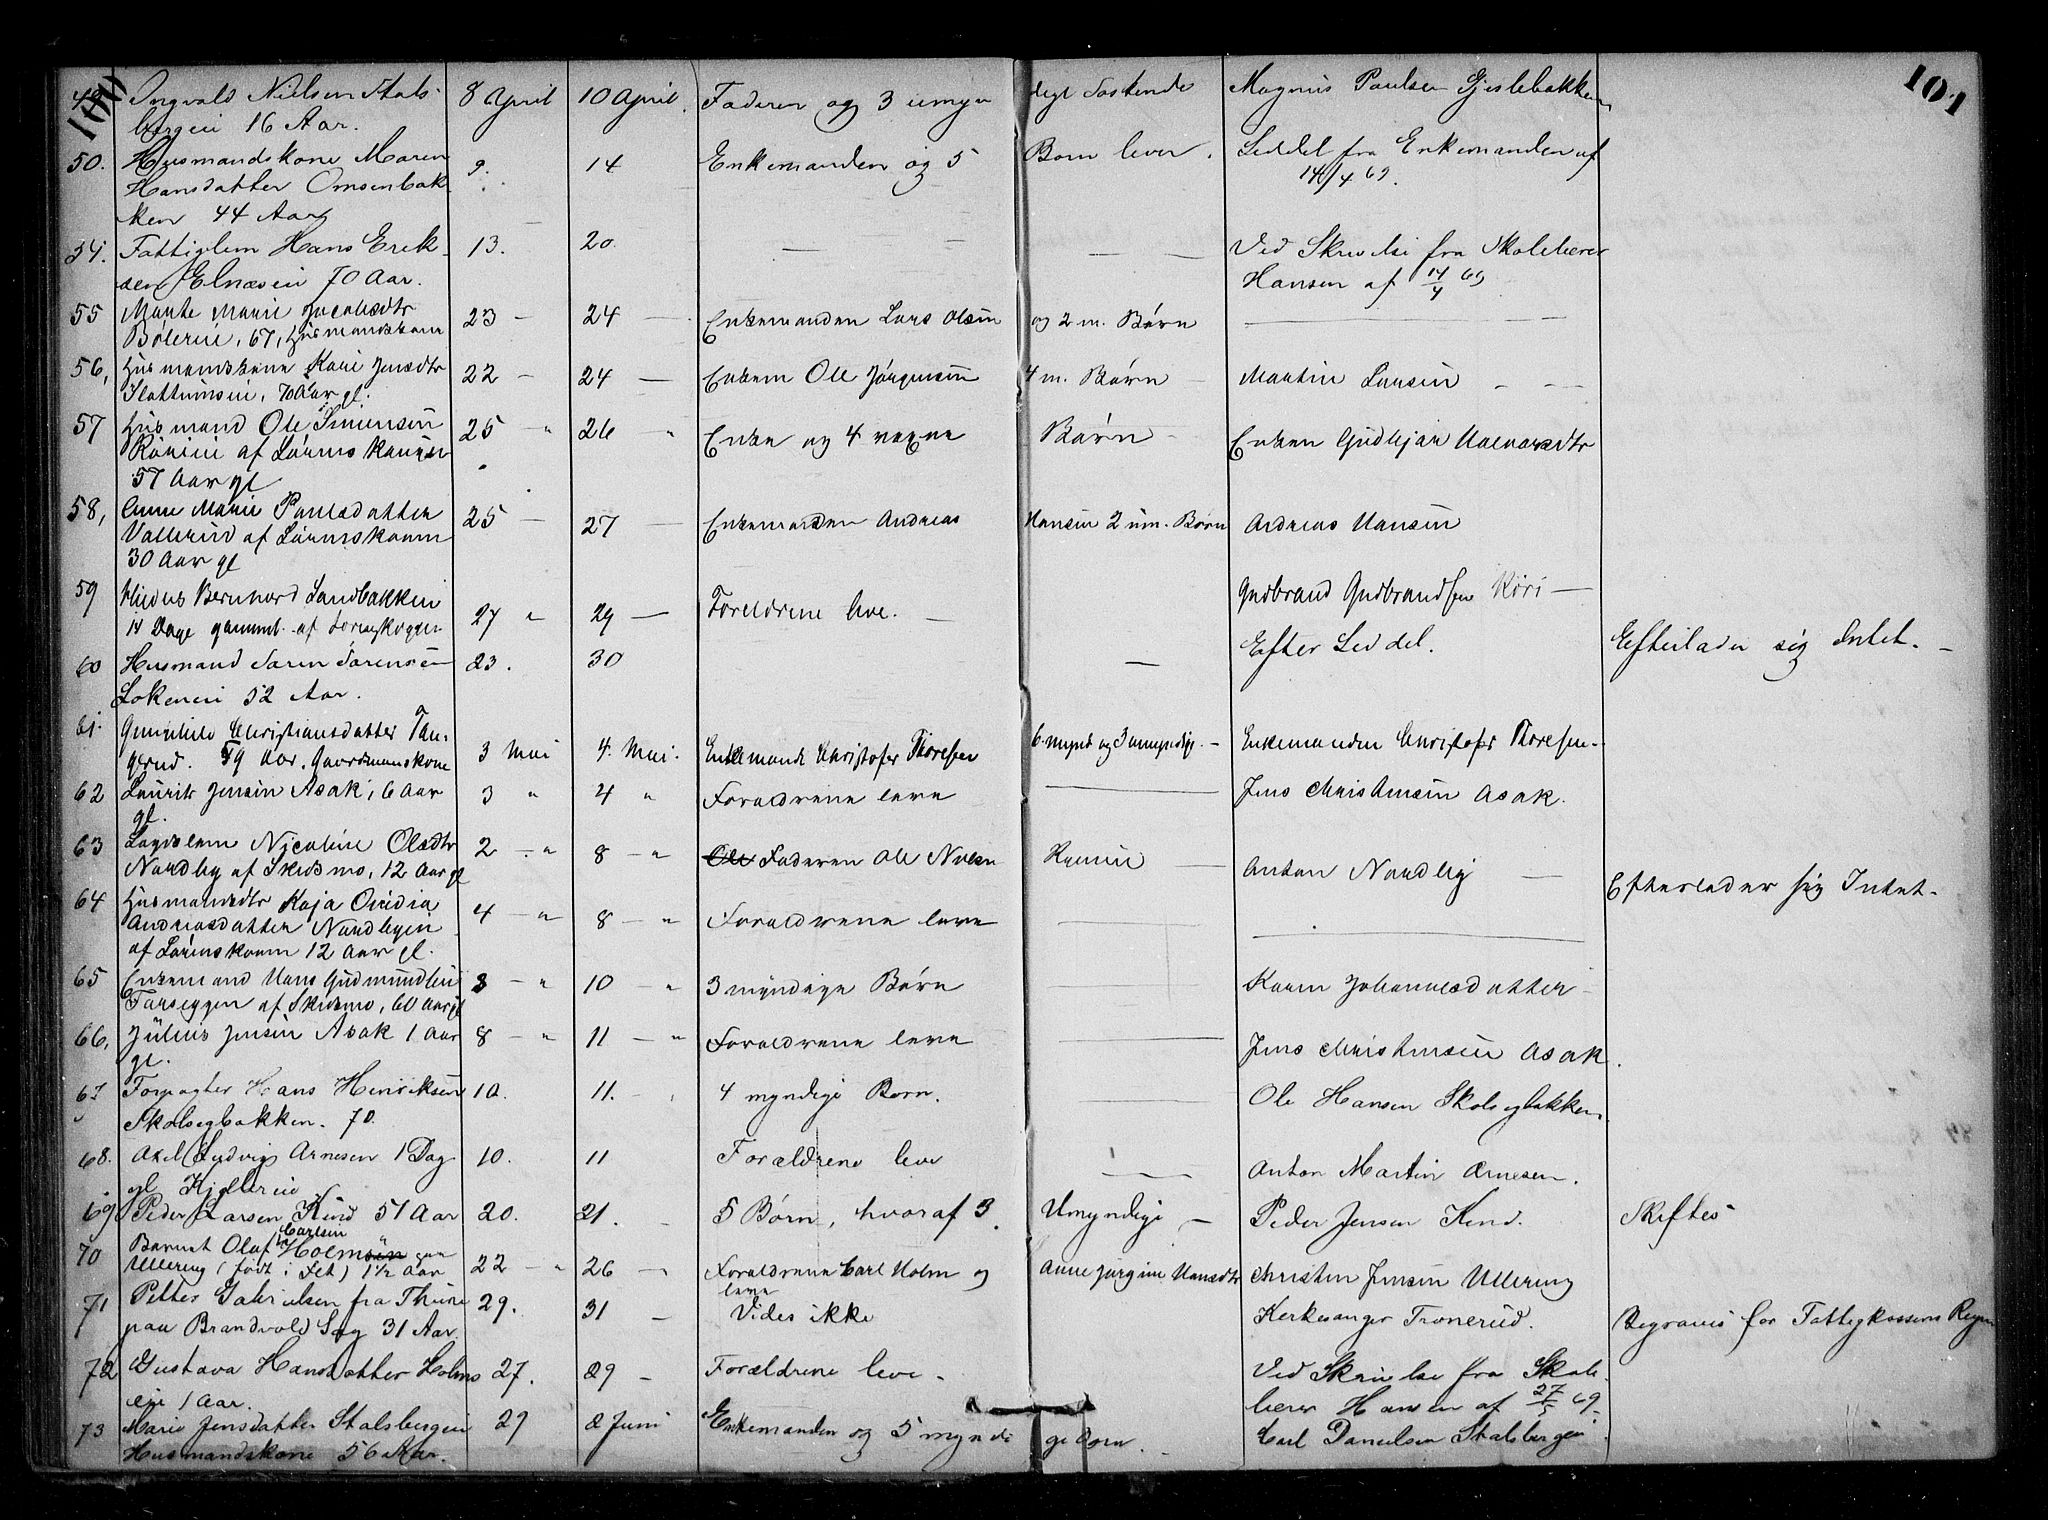 100 101
49. Ingvald Nielsen Stals- 8 April 10 April. Faderen og 3 umyn digt Søskende Magnus Paulsen Gjeslebakken
bergeie 16 Aar.
50. Husmandskone Maren 9. 14 Enkemanden og 5 Born lever. Seddel fra Enkemanden af
Hansdatter Omsenbak 14/4 69.
ken 44 Aar
54. Fattiglem Hans Erik 13. 20. — — — — Ved Skrivelse fra Skolelærer
sen Elnæseie 70 Aar. Hansen af 14/4 69
55 Marte Marie Jacobsdtr 23 — 24 — Enkemanden Lars Olsen og 2 m. Børn —
Bølereie, 67, Husmandskone
56, Husmandskone Kari Jensdtr 22 — 24 — Enkem Ole Jørgensen 4 m. Børn — Martin Larsen — —
Slattumseie, 70 Aar gl.
57 Husmand Ole Simensen 25 " 26 " Enke og 4 voxne Børn — Enken Gudbjør Halvorsdtr
Røkeie af Lørenskoug
57 Aar gl
58, Anne Marie Paulsdatter 25 — 27 — Enkemanden Andreas Hansen 2 um. Børn Andreas Hansen
Vallerud af Lørenskoug
30 Aar gl
59 Bernhard Sandbakken 27 " 29 — Foreldrene leve. — Gudbrand Gudbrandsen —
14 Dage gammel af Lørenskoggen
60 Husmand Søren Sørensen 23. 30 — Efter Seddel. Efterlader sig Intet. —
Lokeneie 52 Aar.
61. Gunhild Christiansdatter Tan- 3 Mai 4. Mai. Enkemand Christofer Thoresen 6 mynd og 3 umyndige. — Enkemanden Christofer Thoresen.
gerud. 59 Aar. Gaardmanskone
62 Lauritz Jensen Asak, 6 Aar 3 " 4 " Forældrene leve — Jens Christensen Asak.
gl.
63 Lægdslem Nicoline Olsdtr 2 — " 8 — " Ole Faderen Ole Nilsen — Anton Nordby — Efterlader sig Intet.
Nordby af Skidsmo, 12 Aar gl
64 Husmandsdtr Kaja Ovidia 4 — " 8 — " Forældrene leve — —
Andreasdatter Nordbyen
af Lørenskoum 12 Aar gl.
65 Enkemand Hans Gudmundsen 8 — " 10 — " 3 myndige Børn — Karen Johannesdatter —
Farseggen af Skidsmo, 60 Aar gl
66, Julius Jensen Asak 1 Aar 8 — " 11 — " Forældrene leve — Jens Christensen Asak.
gl.
67 Forpagter Hans Henriksen 10. 11. 4 myndige Born. — Ole Hansen Skolsegbakken
Skolsegbakken. 70.
68. Axel Ludvig Arnesen 1 Dag 10. 11 Forældrene leve — Anton Martin Arnesen.
gl Kjellereie
69 Peder Larsen Kind 51 Aar 20. 21. — 5 Børn, hvoraf 3 Umyndige — Peder Jensen Kind. Skiftes
Carlsen
70 Barnet Oluf Holmsen paa 22 — " 26 — " Forældrene Carl Holm og Anne Jørgine Hansdtr Christen Jensen Ullering
Ullering (født i Fet) 1 1/2 Aar leve
71 Petter Gabrielsen fra Thune 29. 31 — Vides ikke Kirkesanger Tronerud. Begraves for Fattigkassens Regn
paa Brandvold Sag 31 Aar
72 Gustava Hansdatter Holms 27. 29 — Forældrene leve — Ved Skrivelse fra Skole
eie 1 Aar. lærer Hansen af 27/5 69.
73 Marie Jensdatter Stalsbergeie 29 2 Juni Enkemanden og 5 myndi ge Børn. — Carl Danielsen Stalsbergeie
Husmandskone 56 Aar.